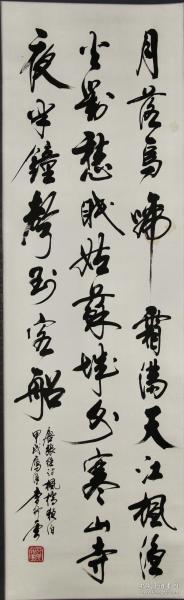 月落烏啼霜滿天江楓漁
火對愁眠姑蘇城外寒山寺
夜半鐘聲到客船
唐張繼詩楓橋夜泊
甲戌